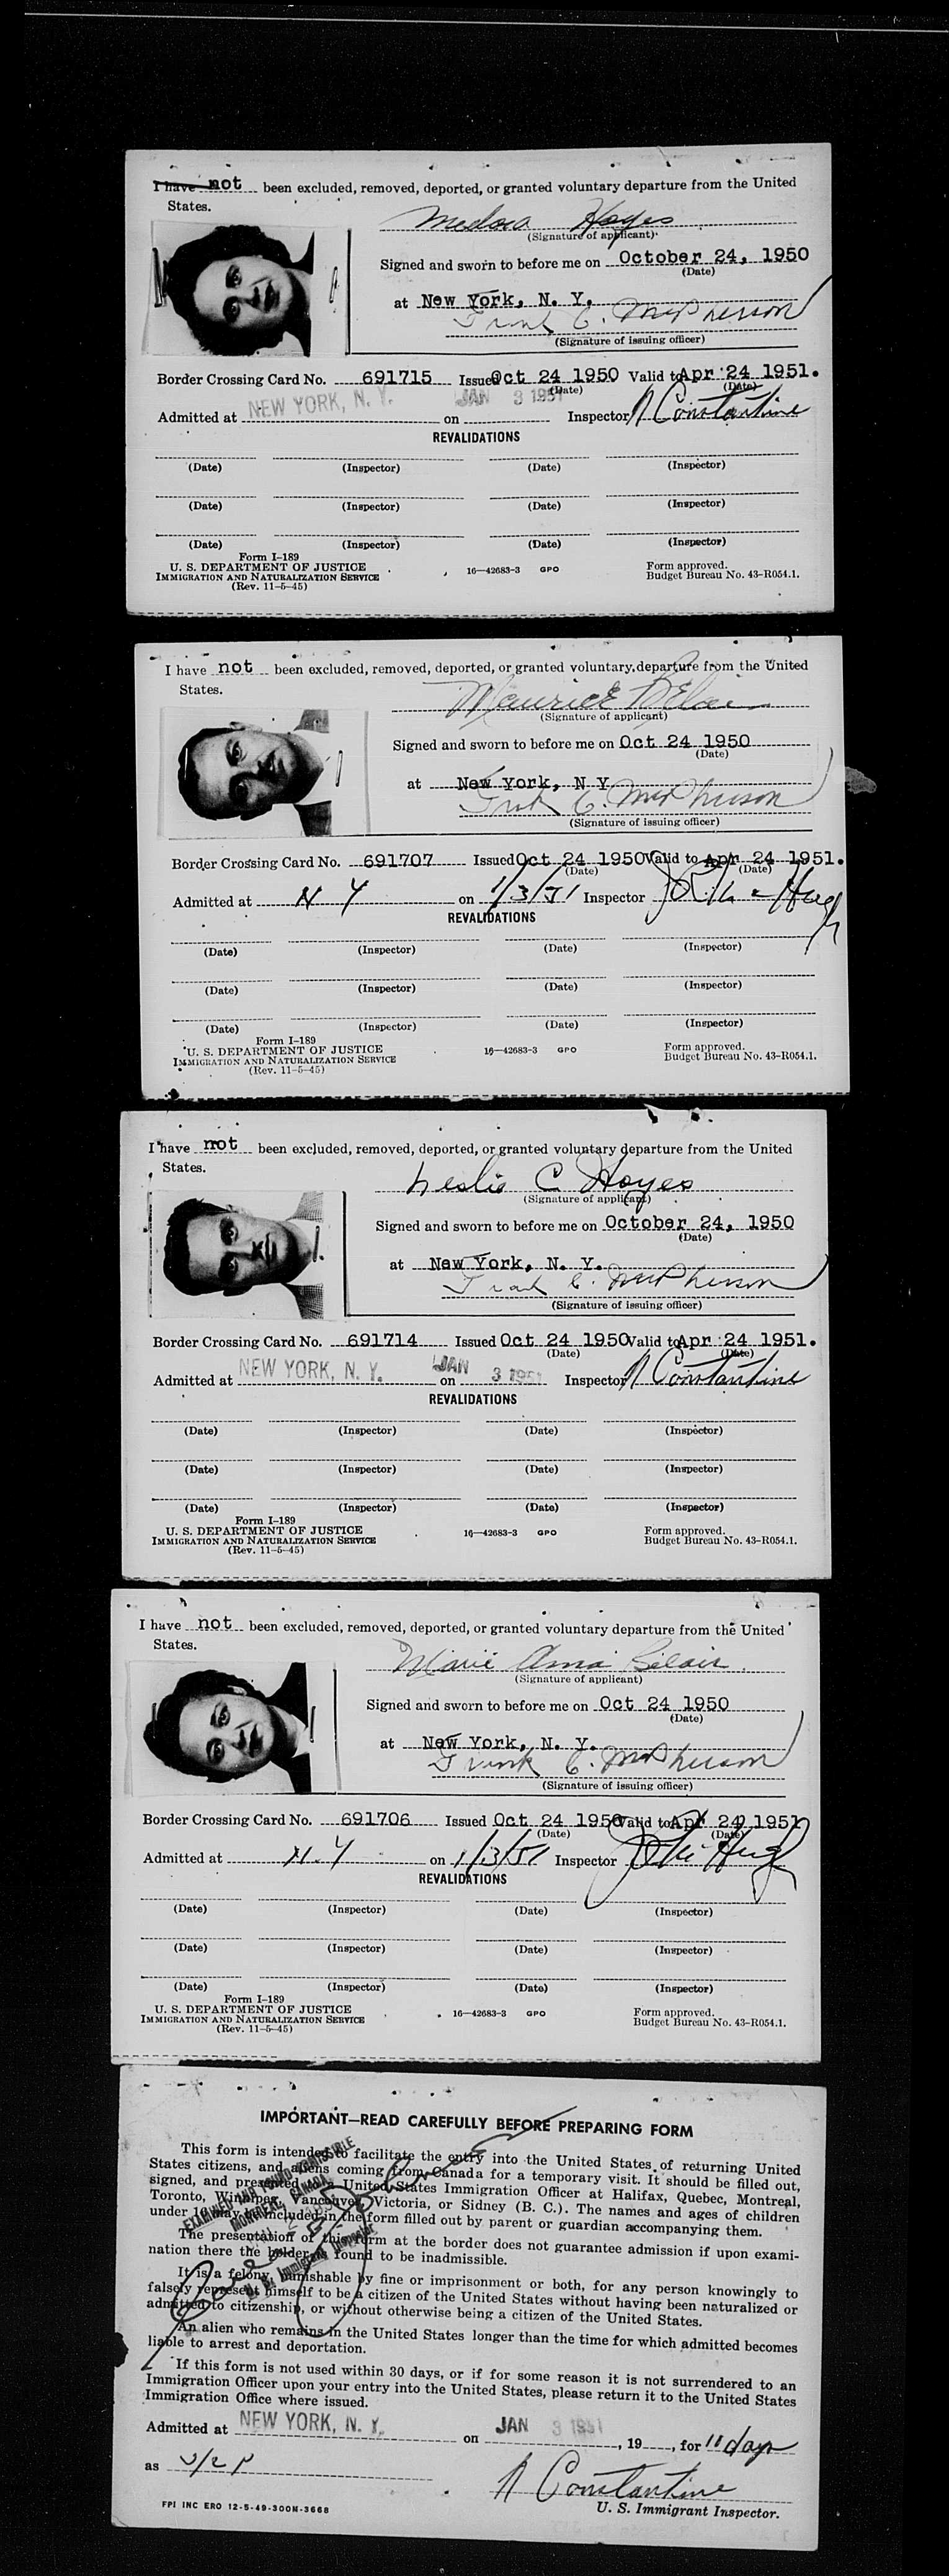 I have not been excluded, removed, deported, or granted voluntary departure from the United
States.
Medora Hoyes
(Signature of applicant)
Signed and sworn to before me on October 24, 1950
(Date)
at New York, N. Y.
Frank C. McPherson
(Signature of issuing officer)
Border Crossing Card No. 691715 Issued Oct 24 1950 Valid to Apr 24 1951.
(Date) (Date)
Admitted at NEW YORK, N. Y. on JAN 3 1951 Inspector N Constantine
REVALIDATIONS
(Date) (Inspector) (Date) (Inspector)
(Date) (Inspector) (Date) (Inspector)
(Date) (Inspector) (Date) (Inspector)
Form I-189
U. S. DEPARTMENT OF JUSTICE
IMMIGRATION AND NATURALIZATION SERVICE
(Rev. 11-5-45)
16—42683-3 GPO
Form approved.
Budget Bureau No. 43-R054.1.
I have not been excluded, removed, deported, or granted voluntary departure from the United
States.
Maurice Belair
(Signature of applicant)
Signed and sworn to before me on Oct 24 1950
(Date)
at New York, N Y
Frank C. McPherson
(Signature of issuing officer)
Border Crossing Card No. 691707 Issued Oct 24 1950 Valid to Apr 24 1951.
(Date) (Date)
Admitted at N Y on 1/3/51 Inspector
REVALIDATIONS
(Date) (Inspector) (Date) (Inspector)
(Date) (Inspector) (Date) (Inspector)
(Date) (Inspector) (Date) (Inspector)
Form I-189
U. S. DEPARTMENT OF JUSTICE
IMMIGRATION AND NATURALIZATION SERVICE
(Rev. 11-5-45)
16—42683-3 GPO
Form approved.
Budget Bureau No. 43-R054.1.
I have not been excluded, removed, deported, or granted voluntary departure from the United
States.
Leslie C Hoyes
(Signature of applicant)
Signed and sworn to before me on October 24, 1950
(Date)
at New York, N. Y.
Frank C. McPherson
(Signature of issuing officer)
Border Crossing Card No. 691714 Issued Oct 24 1950 Valid to Apr 24 1951.
(Date) (Date)
Admitted at NEW YORK, N. Y. on JAN 3 1951 Inspector N Constantine
REVALIDATIONS
(Date) (Inspector) (Date) (Inspector)
(Date) (Inspector) (Date) (Inspector)
(Date) (Inspector) (Date) (Inspector)
Form I-189
U. S. DEPARTMENT OF JUSTICE
IMMIGRATION AND NATURALIZATION SERVICE
(Rev. 11-5-45)
16—42683-3 GPO
Form approved.
Budget Bureau No. 43-R054.1.
I have not been excluded, removed, deported, or granted voluntary departure from the United
States.
Marie Anna Belair
(Signature of applicant)
Signed and sworn to before me on Oct 24 1950
(Date)
at New York, N. Y.
Frank C. McPherson
(Signature of issuing officer)
Border Crossing Card No. 691706 Issued Oct 24 1950 Valid to Apr 24 1951
(Date) (Date)
Admitted at N.Y on 1/3/51 Inspector
REVALIDATIONS
(Date) (Inspector) (Date) (Inspector)
(Date) (Inspector) (Date) (Inspector)
(Date) (Inspector) (Date) (Inspector)
Form I-189
U. S. DEPARTMENT OF JUSTICE
IMMIGRATION AND NATURALIZATION SERVICE
(Rev. 11-5-45)
16—42683-3 GPO
Form approved.
Budget Bureau No. 43-R054.1.
IMPORTANT—READ CAREFULLY BEFORE PREPARING FORM
This form is intended to facilitate the entry into the United States of returning United
States citizens, and aliens coming from Canada for a temporary visit. It should be filled out,
signed, and presented to a United States Immigration Officer at Halifax, Quebec, Montreal,
Toronto, Winnipeg, Vancouver, Victoria, or Sidney (B. C.). The names and ages of children
under 16 may be included in the form filled out by parent or guardian accompanying them.
The presentation of this form at the border does not guarantee admission if upon exami-
nation there the holder is found to be inadmissible.
It is a felony, punishable by fine or imprisonment or both, for any person knowingly to
falsely represent himself to be a citizen of the United States without having been naturalized or
admitted to citizenship, or without otherwise being a citizen of the United States.
An alien who remains in the United States longer than the time for which admitted becomes
liable to arrest and deportation.
If this form is not used within 30 days, or if for some reason it is not surrendered to an
Immigration Officer upon your entry into the United States, please return it to the United States
Immigration Office where issued.
EXAMINED AND FOUND ADMISSIBLE
MONTREAL, CANADA
U. S. Immigrant Inspector
Admitted at NEW YORK, N. Y. on JAN 3 1951, 19, for 11 days
as
N Constantine
U. S. Immigrant Inspector.
FPI INC ERO 12-5-49-300M-3668